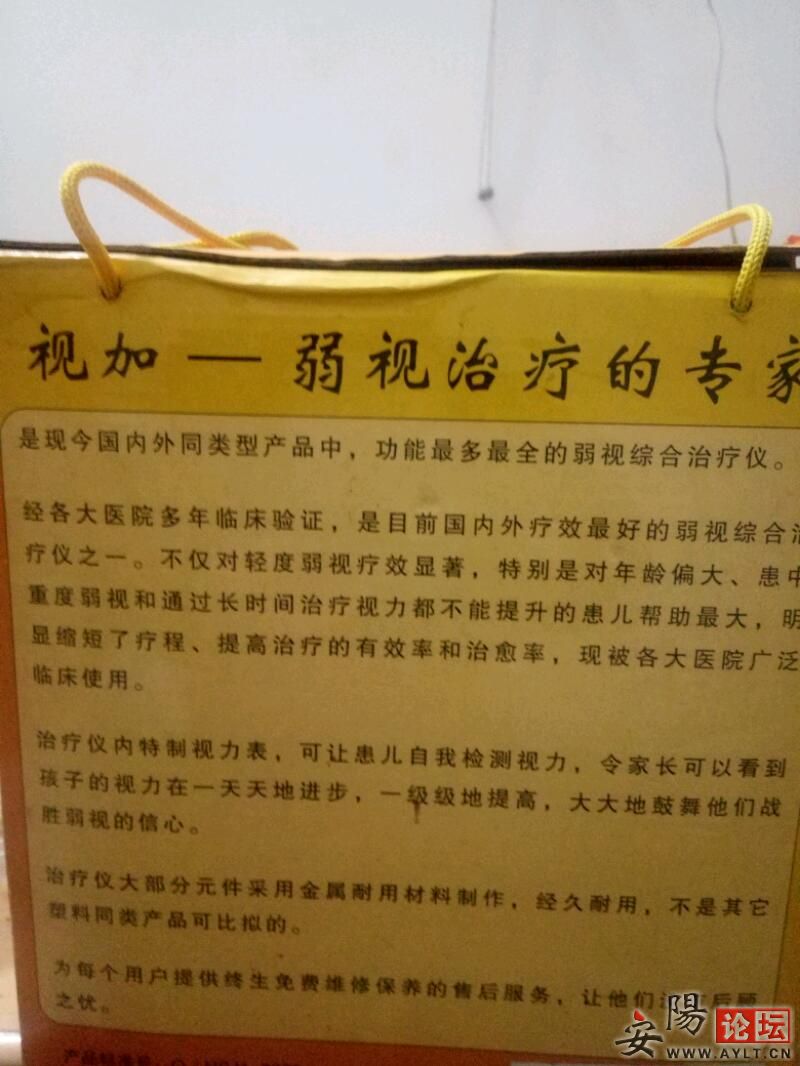 视加一弱视治疗的专家
是现今国内外同类型产品中，功能最多最全的弱视综合治疗仪。
经各大医院多年临床验证，是目前国内外疗效最好的弱视综合治
疗仪之一。不仅对轻度弱视疗效显著，特别是对年龄偏大、患中
重度弱视和通过长时间治疗视力都不能提升的患儿帮助最大，明
显缩短了疗程、提高治疗的有效率和治愈率，现被各大医院广泛
临床使用。
治疗仪内特制视力表，可让患儿自我检测视力，令家长可以看到
孩子的视力在一天天地进步，一级级地提高，大大地鼓舞他们战
胜弱视的信心。
治疗仪大部分元件采用金属耐用材料制作，经久耐用，不是其它
塑料同类产品可比拟的。
为每个用户提供终生免费维修保养的售后服务，让他们没有后顾
之忧。
产品标准号：
安陽论坛
WWW.AYLT.CN